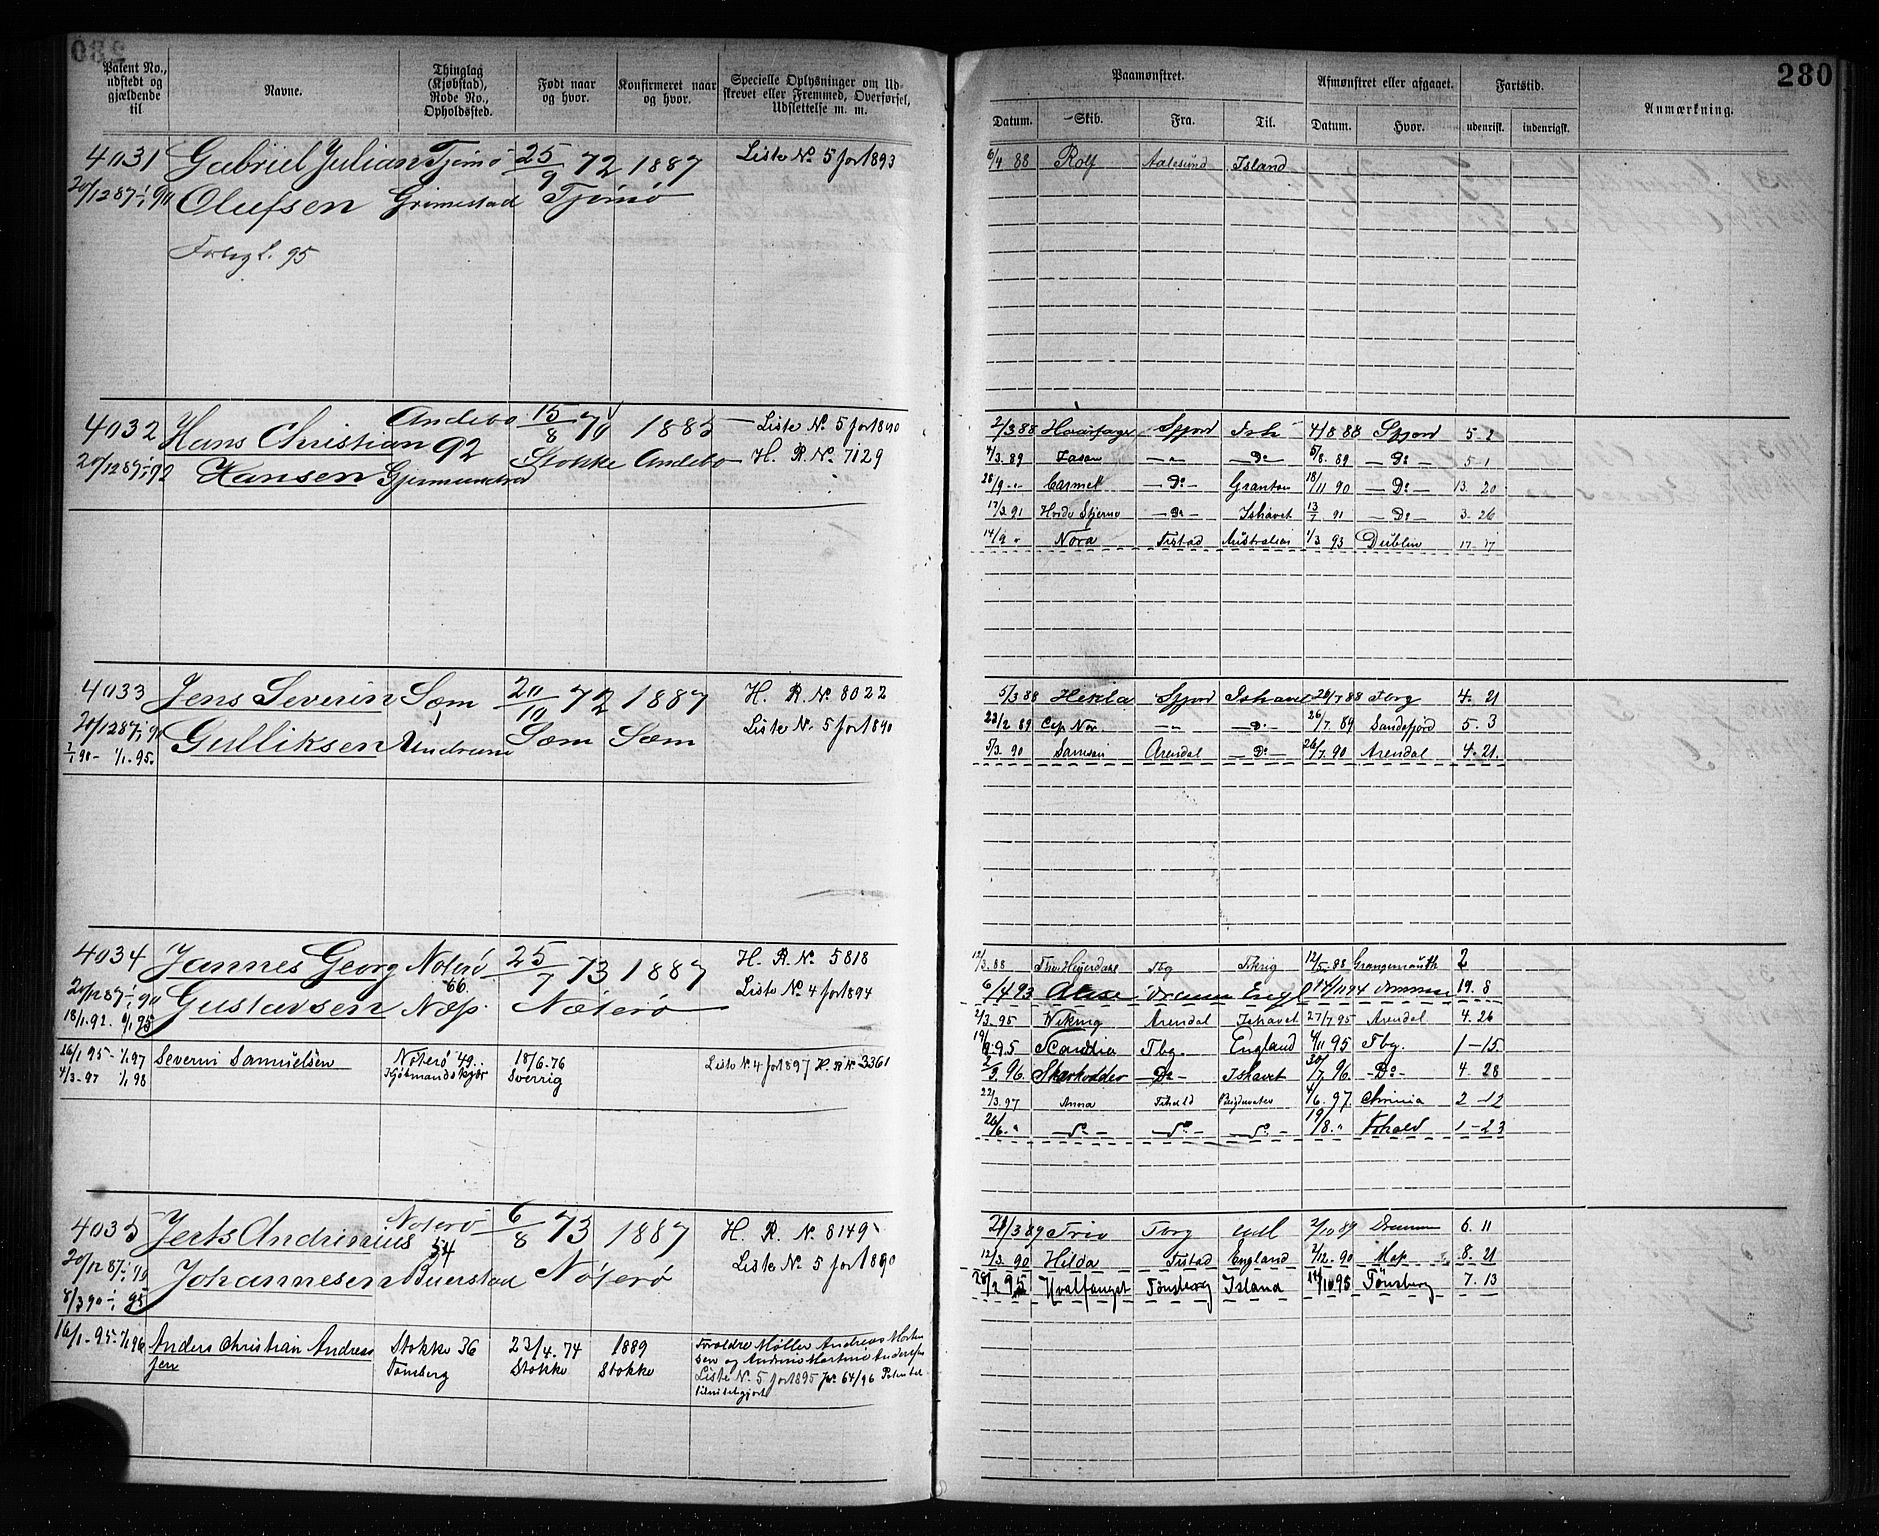 280
Patent No., udstedt og gjældende til
Navne.
Thinglag (Kjøbstad), Rode No., Opholdssted.
Født naar og hvor.
Konfirmeret naar og hvor.
Specielle Oplysninger om Udskrevet eller Fremmed, Overførsel, Udslettelse m. m.
Paamønstret.
Afmønstret eller afgaaet.
Fartstid.
Anmærkning.
Datum. Skib. Fra. Til. Datum. Hvor. udenrisk. indenrigsk.
4031 Gabriel Julian Tjømø 25/9 72 1887 Liste No 5 for 1893
20/12 87 Olufsen Grimestad Tjømø
95
6/4 88 Rolf Aalesund Island
4032 Hans Christian Andebo 92 15/8 1885 Liste No 5 for 1890
20/12 87 Hansen Stokke Andebo H. R. No 7129
2/3 88 Haarfager Sfjord Ish 4/8 88 Sfjord 5 2
4/3 89 Jason — " — Do 5/8 89 — Do — 5 1
28/9 " Carmel Do Granton 18/11 90 — Do — 13. 20
17/3 91 Hvide Stjerne Do Ishavet 13/7 91 — Do 3. 26
14/9 " Nora Fistad Australien 1/3 93 Dublin 17. 17
4033 Jens Severin Sem 20/10 72 1887 H. R. No 8022
20/12 87 Gulliksen Sem Sem Liste No 5 for 1890
1/1 90 — 1/1. 95.
5/3 88 Hekla Sfjord Ishavet 26/7 88 Tbrg 4. 21
22/2 89 Cap Nor. — " — Do 26/7 89 Sandefjord 5. 3
5/3. 90 Samson Arendal — Do — 26/7. 90 Arendal 4. 21.
4034 Jannes Georg Noterø 66. 25/7 73 1887 H. R. No 5818
20/12 87 Gustavsen Næs Nøterø Liste No 4 for 1894
18/1. 92. 1/1 95
16/1 95 - 1/1 97 Severin Samuelsen Nøterø 49. 18/6. 76 Liste No 4 for 1897 H. R No 3361
4/3. 97 1/1 98 Kjøbmandskjær Sverrig
12/3. 88 Heyerdahl Tbg 12/5. 88 Grangemouth 2
6/4 93 Engl 19. 8
2/3. 95 Viking Arendal Ishavet 27/7 95 Arendal 4. 26
19/9 95 Scandia Tbg. England 4/11 95 Tbg. 1 — 15
96. Skarhodder Do Ishavet 30/7. 96. — Do — 4. 28
22/3. 97 Anna 4/6. 97. Chrinia 2 — 12
26/6. " — Do — — Do — — Do — 19/8. " 1 — 23
4035 Andrinius Noterø 54 6/8 73 1887 H. R. No. 8149
20/12 87 Johannesen Buerstad Nøterø Liste No 5 for 1890
8/3 90 95
16/1 95 - 1/1 96 Anders Christian Andreassen Stokke 36 23/4. 74 1889 Forældre Møller Andreas Morten
Tønsberg Stokke Stokke sen og
Liste No. 5 for 1895
21/3 89 Trio Tbrg 2/10 89 6. 11
12/3. 90 Hilda Fistad England 2/12. 90 8. 21
28/2 95 Hvalfanget Tønsberg Island 14/10 95 Tønsberg 7. 13